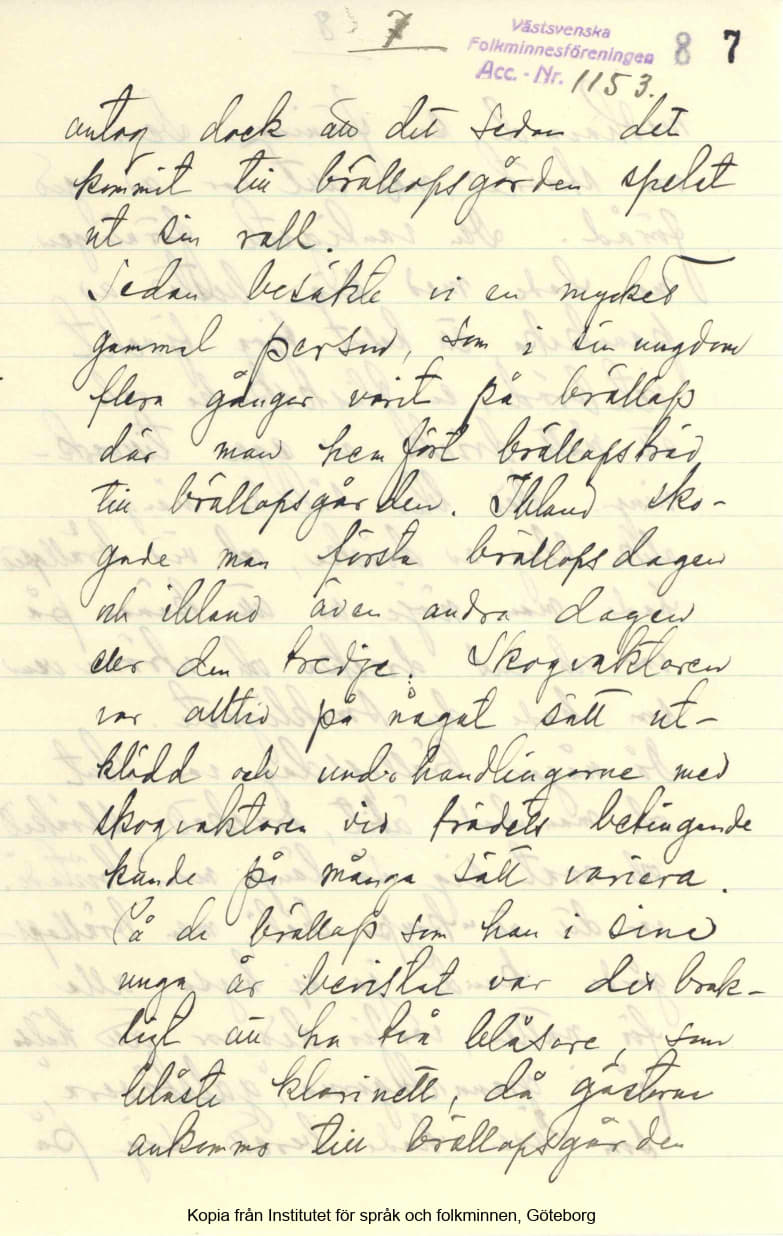 7
Västsvenska
Folkminnesföreningen
Acc.-Nr. 1153.
8 7
antog dock att det sedan det
kommit till bröllopsgården spelat
ut sin roll.
Sedan besökte vi en mycket
gammal person, som i sin ungdom
flera gånger varit på bröllop
där man hemfört bröllopsträd
till bröllopsgården. Ibland sko-
gade man första bröllopsdagen
och ibland även andra dagen
eller den tredje. Skogvaktaren
var alltid på något sätt ut-
klädd och underhandlingarne med
skogvaktaren vid trädets betingande
kunde på många sätt variera.
På de bröllop som han i sina
unga år bevistat var det bruk-
ligt att ha två blåsare, som
blåste klarinett, då gästerna
ankommo till bröllopsgården
Kopia från Institutet för språk och folkminnen, Göteborg